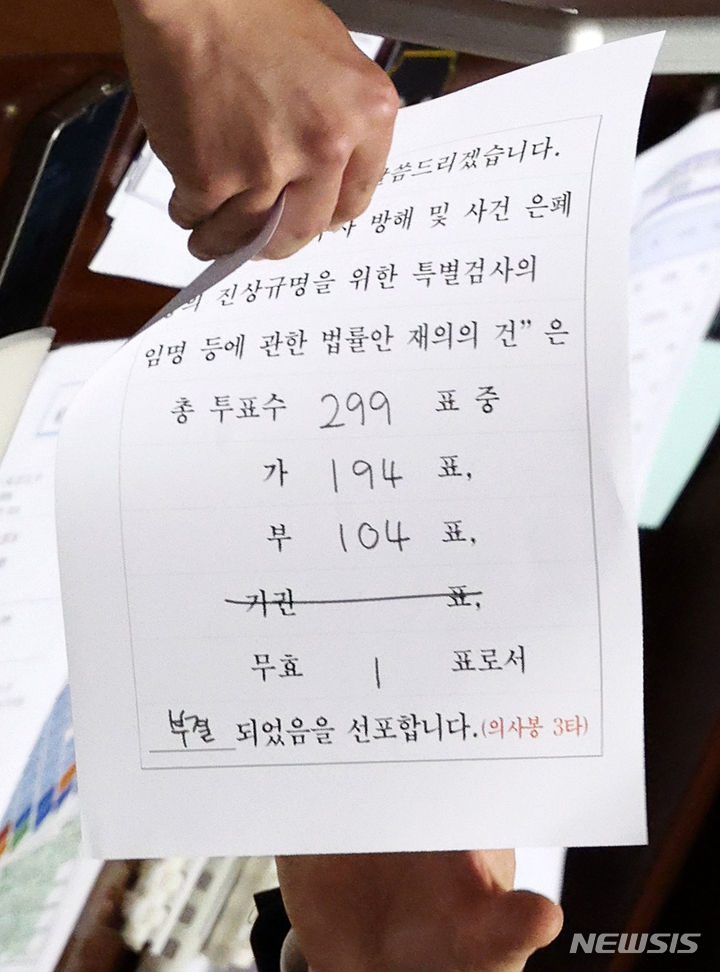 말씀드리겠습니다.
방해 및 사건 은폐
진상규명을 위한 특별검사의
임명 등에 관한 법률안 재의의 건” 은
총 투표수 299 표 중
가 194 표,
부 104 표,
기권 표,
무효 1 표로서
부결 되었음을 선포합니다.(의사봉 3타)
NEWSIS